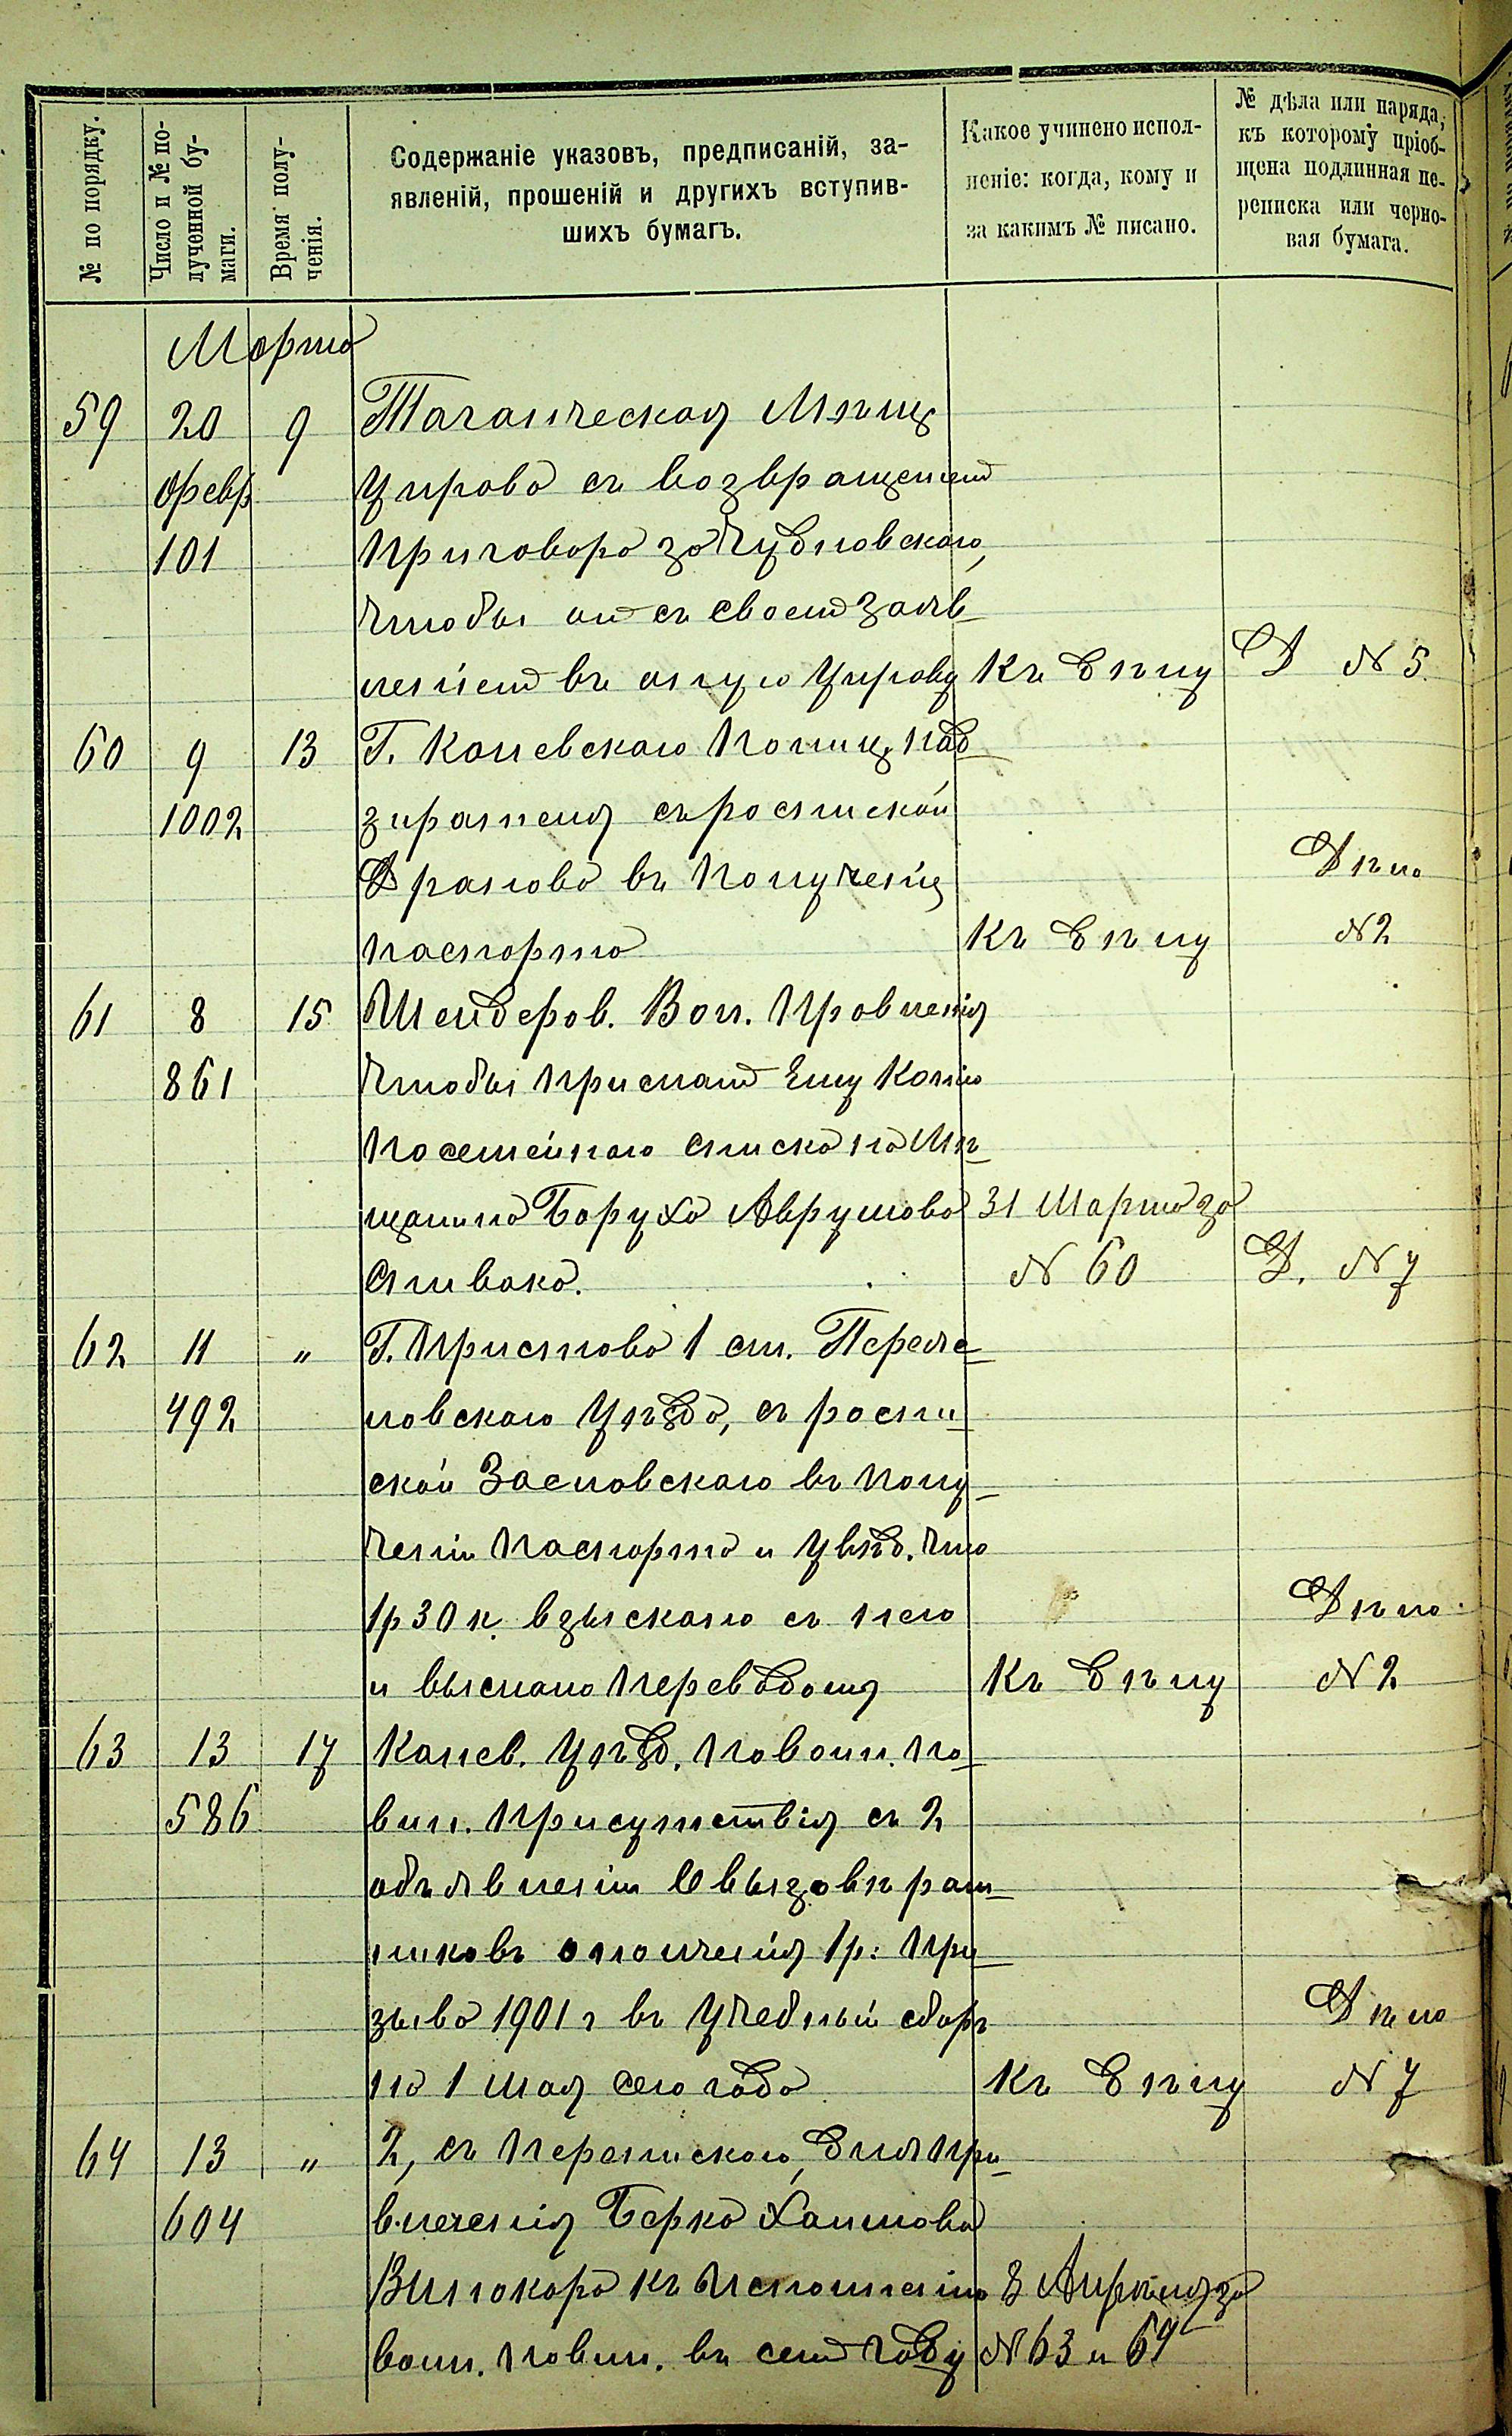 № по порядку.
Число и № по-
лученной бу-
маги.
Время полу-
ченія.
Содержаніе указовъ, предписаній, за-
явленій, прошеній и другихъ вступив-
шихъ бумагъ.
Какое учинено испол-
неніе: когда, кому и
за какимъ № писано.
№ дѣла или наряда,
къ которому пріоб-
щена подлинная пе-
реписка или черно-
вая бумага.
Марта
59 20 9 Таганческая Мѣщ.
февр Управа съ возвращеніем
101 приговора за Чудновскаго,
чтобы он съ своем заяв-
леніем въ оную Управу Къ дѣлу Д № 5
60 9 13 Г. Каневскаго Полиц. над-
1002 зирателя съ роспиской
Дѣло
въ полученіи
паспорта Къ дѣлу № 2
61 8 15 Шендеров. Вол. Правленія
861 чтобы прислат ему копію
посемейнаго списка на Мѣ-
щанина Боруха Аврумова 31 Марта за
Спивака. № 60 Д. № 7
62 11 " Г. Пристава 1 ст. Переяс-
492 лавскаго уѣзда, съ роспи-
ской Заславскаго въ полу-
ченіи паспорта и увѣд. что
1р 30 к. взыскано съ него Дѣло
и выслано переводом Къ дѣлу № 2
63 13 17 Канев. Уѣзд. по воин. по-
586 вин. Присутствія съ 2
объявленіям О вызовѣ рат-
никовъ ополченія 1р: при-
зыва 1901 г въ учебный сборъ Дѣло
на 1 мая сего года Къ дѣлу № 7
64 13 " 2, съ перепискою, для при-
604 влеченія Берка Хаимова
Винокора къ исполненію 8 Апрѣля за
воин. повин. въ сем году № 63 и 64